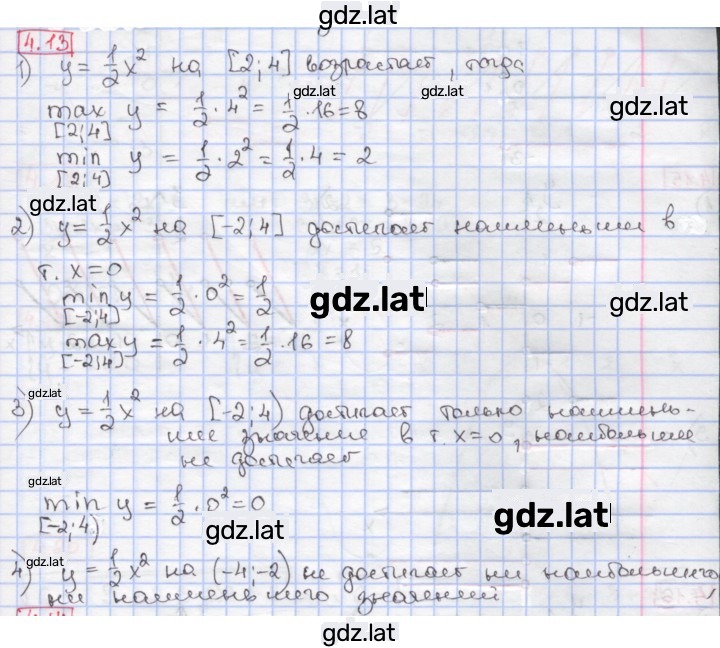 gdz.lat
4.13
1) y = 1/2 x² на [2; 4] возрастает, тогда
gdz.lat gdz.lat
max y = 1/2 · 4² = 1/2 · 16 = 8 gdz.lat
[2; 4]
min y = 1/2 · 2² = 1/2 · 4 = 2
[2; 4]
gdz.lat
2) y = 1/2 x² на [-2; 4] достигает наименьшии в
т. x = 0
min y = 1/2 · 0² = 1/2 gdz.lat gdz.lat
[-2; 4]
max y = 1/2 · 4² = 1/2 · 16 = 8
[-2; 4]
gdz.lat
3) y = 1/2 x² на [-2; 4) достигает только наимень-
шие значение в т. x = 0, наибольшие
не достигает
gdz.lat
min y = 1/2 · 0² = 0
[-2; 4) gdz.lat gdz.lat
gdz.lat
4) y = 1/2 x² на (-4; -2) не достигает ни наибольшего
ни наименьшего значений
gdz.lat